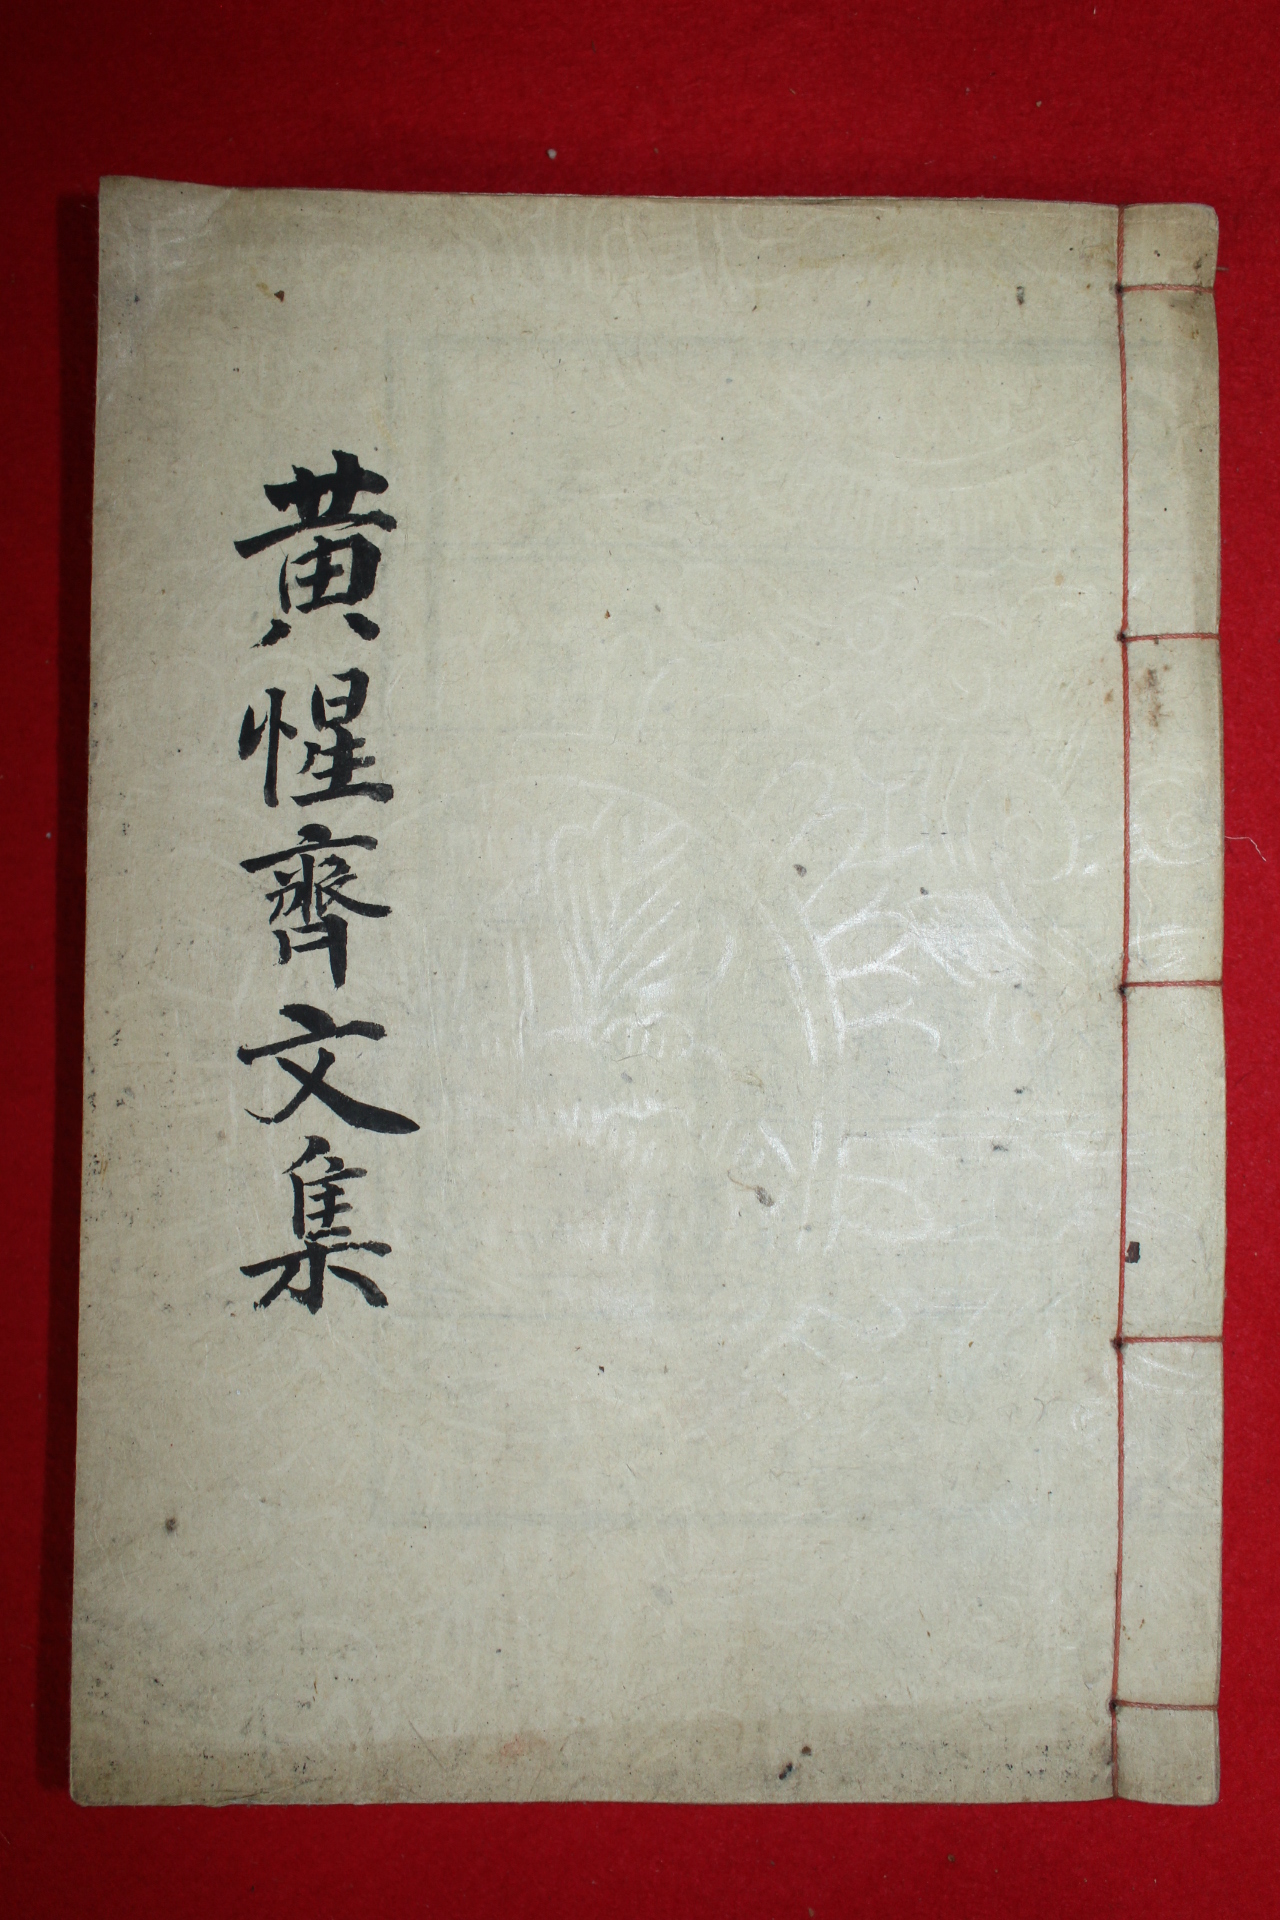 黄惺齋文集